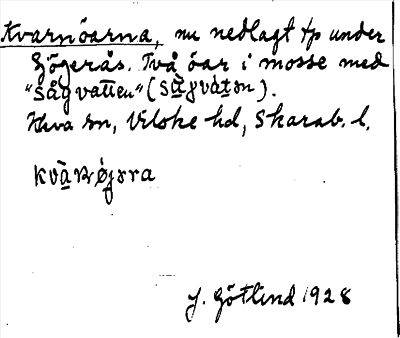 Kvarnöarna, nu nedlagt tp under
Högerås. Två öar i mosse med
"Sågvatten" (sɑ̀gvàtən).
Hva sn, Vilske hd, Skarab. l.
J. Götlind 1928